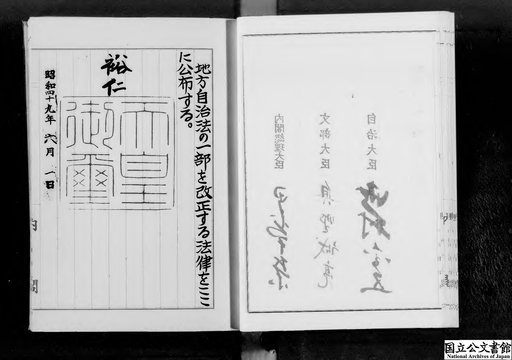 地方自治法の一部を改正する法律をここ
に公布する。
裕仁
天皇
御璽
昭和四十九年六月一日
内閣
自治大臣
文部大臣
内閣総理大臣
国立公文書館
National Archives of Japan